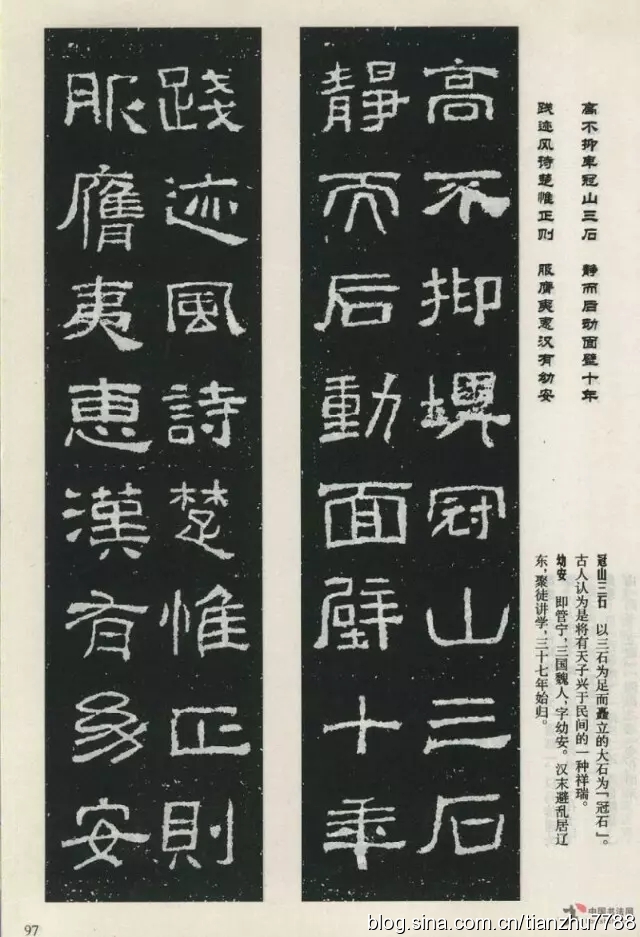 高不抑卑冠山三石　静而后动面壁十年
践迹风诗楚惟正则　服膺夷惠汉有幼安
冠山三石　以三石为足而矗立的大石为「冠石」。
古人认为是将有天子兴于民间的一种祥瑞。
幼安　即管宁，三国魏人，字幼安。汉末避乱居辽
东，聚徒讲学，三十七年始归。
高不抑埤冠山三石
靜而后動面壁十年
踐迹風詩楚惟正則
服膺夷惠漢有幼安
97
中国书法网
blog.sina.com.cn/tianzhu7788